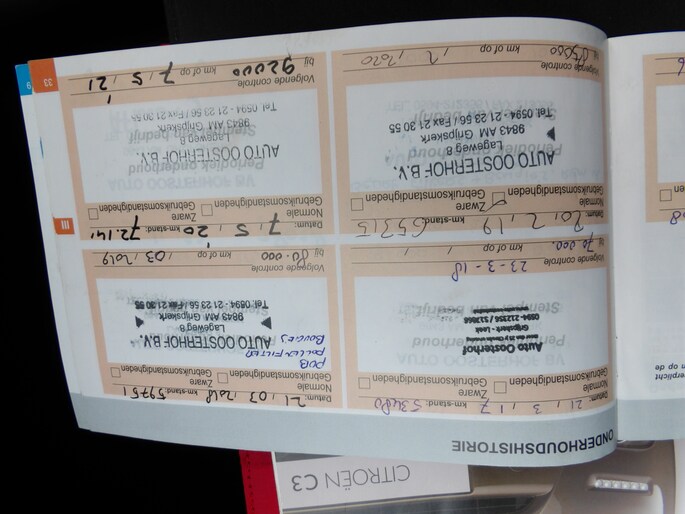 ONDERHOUDSHISTORIE
Datum: 21, 3, 17 km-stand: 53480
Normale
Gebruiksomstandigheden
Zware
Gebruiksomstandigheden
Auto Oosterhof
Grijpskerk - Leek
Volgende controle 23-3-18
bij 70 000 km of op
Datum: 21, 03, 2018 km-stand: 59751
Normale
Gebruiksomstandigheden
Zware
Gebruiksomstandigheden
POLLEN FILTER
BOUGIES
AUTO OOSTERHOF B.V.
Lageweg 8
9843 AM Grijpskerk
Tel. 0594 - 21 23 56 / Fax 21 30 55
Volgende controle
bij 80.000 km of op , 03, 2019
Datum: 20, 2, 19 km-stand: 65315
Normale
Gebruiksomstandigheden
Zware
Gebruiksomstandigheden
AUTO OOSTERHOF B.V.
Lageweg 8
9843 AM Grijpskerk
Tel. 0594 - 21 23 56 / Fax 21 30 55
Volgende controle
bij 85000 km of op , 2, 2020
Datum: 7, 5, 20 km-stand: 72.141
Normale
Gebruiksomstandigheden
Zware
Gebruiksomstandigheden
Periodiek onderhoud
AUTO OOSTERHOF B.V.
Lageweg 8
9843 AM Grijpskerk
Tel. 0594 - 21 23 56 / Fax 21 30 55
Volgende controle
bij 92000 km of op 7, 5, 21
III
33
9
CITROËN C3